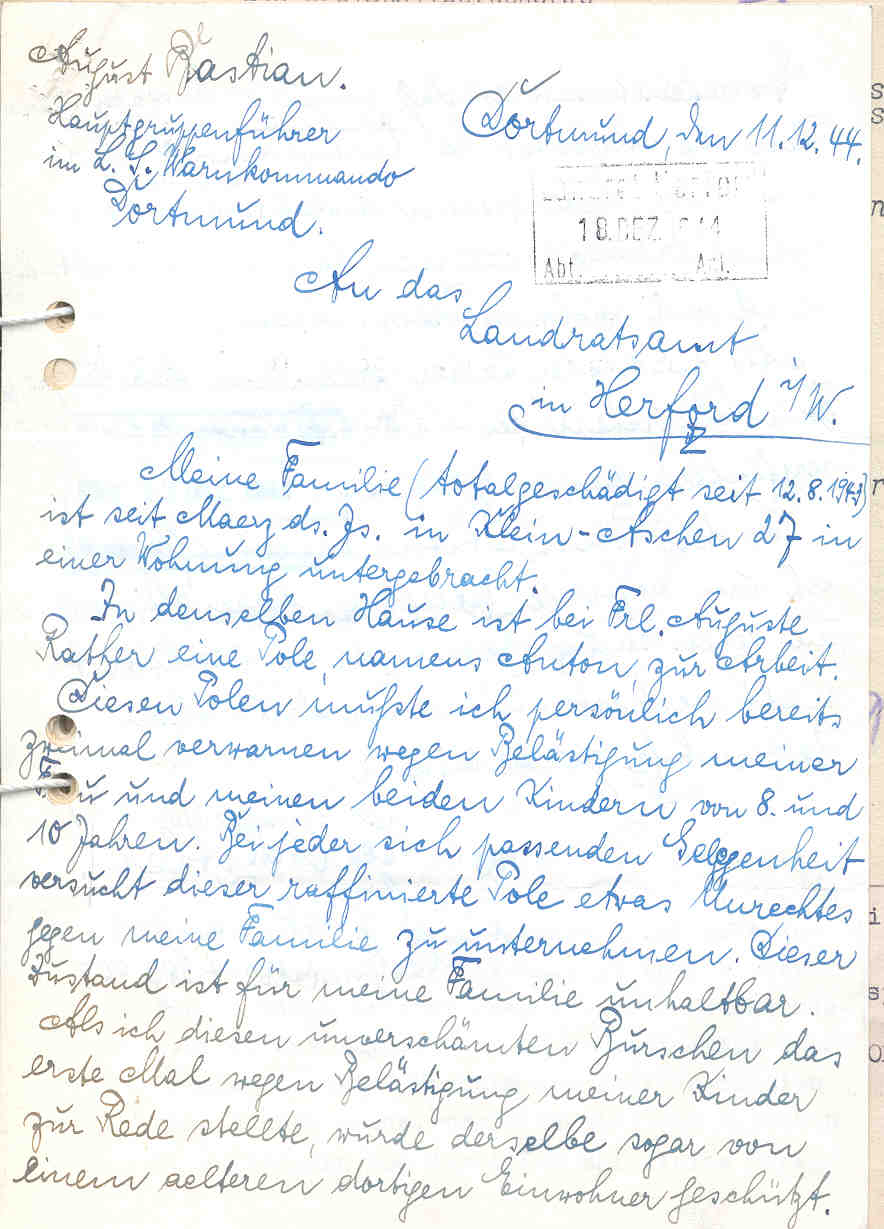 August Bastian.
Hauptgruppenführer
im L. S. Warnkommando
Dortmund.
Dortmund, den 11.12.44.
18. DEZ. 
Abt. Anl.
An das
Landratsamt
in Herford i/W.
Meine Familie (totalgeschädigt seit 12.8.1943)
ist seit Maerz ds. Js. in Klein-Aschen 27 in
einer Wohnung untergebracht.
In denselben Hause ist bei Frl. Auguste
Rather eine Pole, namens Anton, zur Arbeit.
Diesen Polen mußte ich persönlich bereits
zweimal verwarnen wegen Belästigung meiner
Frau und meinen beiden Kindern von 8. und
10 Jahren. Bei jeder sich passenden Gelegenheit
versucht dieser raffinierte Pole etwas Unrechtes
gegen meine Familie zu unternehmen. Dieser
Zustand ist für meine Familie unhaltbar.
Als ich diesen unverschämten Burschen das
erste Mal wegen Belästigung meiner Kinder
zur Rede stellte, wurde derselbe sogar von
einem aelteren dortigen Einwohner geschützt.